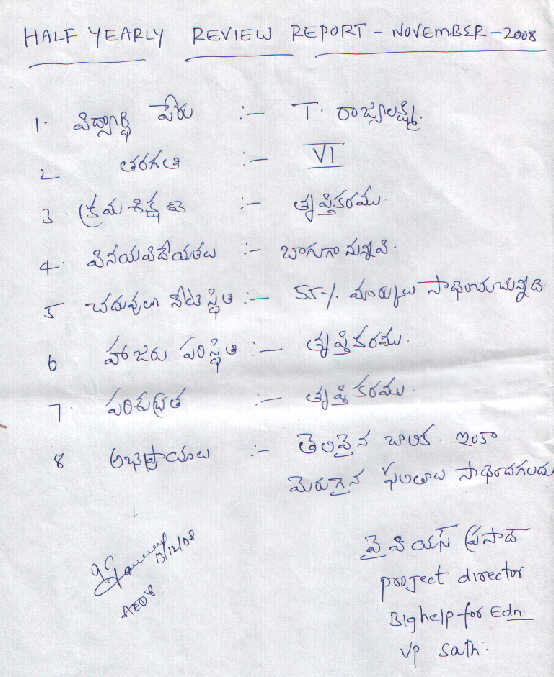 HALF YEARLY REVIEW REPORT - NOVEMBER - 2008
1. విద్యార్థి పేరు :- T. రాజ్యలక్ష్మి.
2. తరగతి :- VI
3 క్రమశిక్షణ :- తృప్తికరము.
4. వినయవిధేయతలు :- బాగుగా నున్నవి.
5 చదువులో స్థితి :- 55-/. మార్కులు సాధించుచున్నది
6 హాజరు పరిస్థితి :- తృప్తికరము.
7. పరిశుభ్రత :- తృప్తికరము.
8 అభిప్రాయాలు :- తెలివైన బాలిక. ఇంకా
మెరుగైన ఫలితాలు సాధించగలదు
వై వి యస్ ప్రసాద్
project director
Bighelp for Edn
12/08